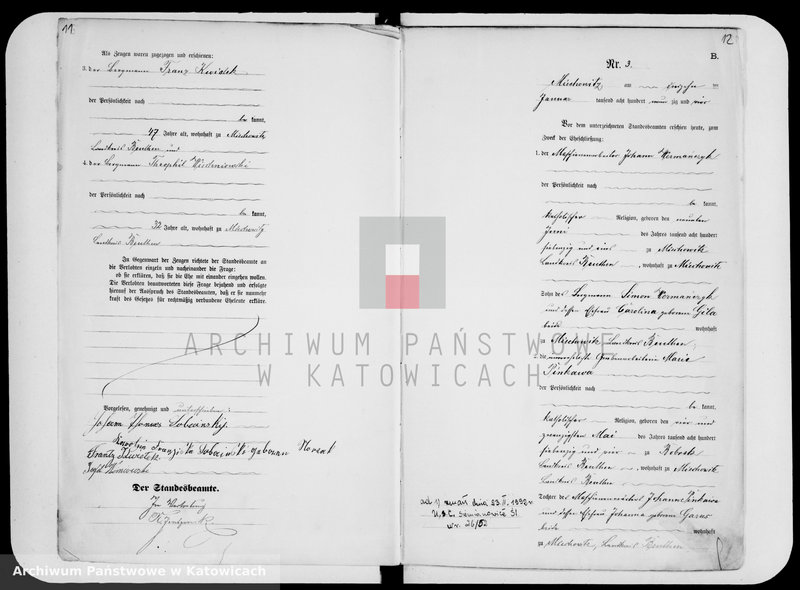 11
Als Zeugen waren zugezogen und erschienen:
3. der Bergmann Franz Kwiotek
der Persönlichkeit nach
be kannt,
47 Jahre alt, wohnhaft zu Miechowitz
Landkreis Beuthen und
4. der Bergmann Theophil Wischniowski
der Persönlichkeit nach
be kannt,
32 Jahre alt, wohnhaft zu Miechowitz
Landkreis Beuthen
In Gegenwart der Zeugen richtete der Standesbeamte an
die Verlobten einzeln und nacheinander die Frage:
ob sie erklären, daß sie die Ehe mit einander eingehen wollen.
Die Verlobten beantworteten diese Frage bejahend und erfolgte
hierauf der Ausspruch des Standesbeamten, daß er sie nunmehr
kraft des Gesetzes für rechtmäßig verbundene Eheleute erkläre.
Vorgelesen, genehmigt und unterschrieben:
Johann Thomas
geboren
Der Standesbeamte.
In Vertretung
12
B.
Nr. 3.
Miechowitz, am zehn ten
Januar tausend acht hundert neun zig und vier
Vor dem unterzeichneten Standesbeamten erschien heute, zum
Zweck der Eheschließung:
1. der Maschinenarbeiter Johann
der Persönlichkeit nach
be kannt,
katholischer Religion, geboren den neunten
Juni des Jahres tausend acht hundert
siebenzig und eins zu Miechowitz
Landkreis Beuthen, wohnhaft zu Miechowitz
Sohn des Bergmann Simon
und dessen Ehefrau Carolina geborene
beide wohnhaft
zu Miechowitz, Landkreis Beuthen
2. die unverehelichte Grubenarbeiterin Marie
Pinkawa
der Persönlichkeit nach
be kannt,
katholischer Religion, geboren den vier und
zwanzigsten Mai des Jahres tausend acht hundert
siebenzig und vier zu Bobrek
Landkreis Beuthen, wohnhaft zu Miechowitz
Landkreis Beuthen
Tochter des Johann Pinkawa
und dessen Ehefrau Johanna geborene
beide wohnhaft
zu Miechowitz, Landkreis Beuthen
U.S.C. Siemianowice Śl
nr. 26/52
ARCHIWUM PAŃSTWOWE
W KATOWICACH
Archiwum Państwowe w Katowicach